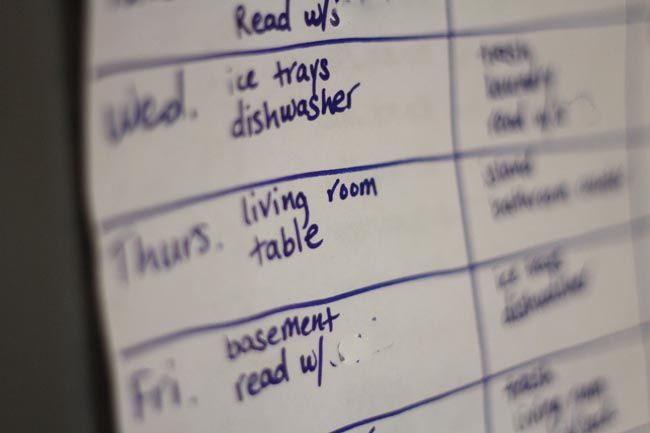 Read w/s
Wed.
ice trays
dishwasher
trash
laundry
read w/s
Thurs.
living room
table
island
ice trays
dishwasher
Fri.
basement
read w/.
trash
living room